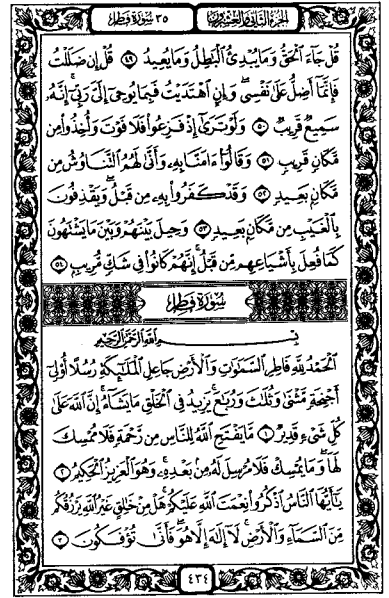 الجزء الثاني والعشرون
٣٥ سورة فاطر
قُلْ جَآءَ ٱلْحَقُّ وَمَا يُبْدِئُ ٱلْبَٰطِلُ وَمَا يُعِيدُ ٤٩ قُلْ إِن ضَلَلْتُ
فَإِنَّمَآ أَضِلُّ عَلَىٰ نَفْسِى وَإِنِ ٱهْتَدَيْتُ فَبِمَا يُوحِىٓ إِلَىَّ رَبِّىٓ إِنَّهُۥ
سَمِيعٌ قَرِيبٌ ٥٠ وَلَوْ تَرَىٰٓ إِذْ فَزِعُوا۟ فَلَا فَوْتَ وَأُخِذُوا۟ مِن
مَّكَانٍ قَرِيبٍ ٥١ وَقَالُوٓا۟ ءَامَنَّا بِهِۦ وَأَنَّىٰ لَهُمُ ٱلتَّنَاوُشُ مِن
مَّكَانٍۭ بَعِيدٍ ٥٢ وَقَدْ كَفَرُوا۟ بِهِۦ مِن قَبْلُ وَيَقْذِفُونَ
بِٱلْغَيْبِ مِن مَّكَانٍۭ بَعِيدٍ ٥٣ وَحِيلَ بَيْنَهُمْ وَبَيْنَ مَا يَشْتَهُونَ
كَمَا فُعِلَ بِأَشْيَاعِهِم مِّن قَبْلُ إِنَّهُمْ كَانُوا۟ فِى شَكٍّ مُّرِيبٍۭ ٥٤
سورة فاطر
بِسْمِ ٱللَّهِ ٱلرَّحْمَٰنِ ٱلرَّحِيمِ
ٱلْحَمْدُ لِلَّهِ فَاطِرِ ٱلسَّمَٰوَٰتِ وَٱلْأَرْضِ جَاعِلِ ٱلْمَلَٰٓئِكَةِ رُسُلًا أُو۟لِىٓ
أَجْنِحَةٍ مَّثْنَىٰ وَثُلَٰثَ وَرُبَٰعَ يَزِيدُ فِى ٱلْخَلْقِ مَا يَشَآءُ إِنَّ ٱللَّهَ عَلَىٰ
كُلِّ شَىْءٍ قَدِيرٌ ١ مَّا يَفْتَحِ ٱللَّهُ لِلنَّاسِ مِن رَّحْمَةٍ فَلَا مُمْسِكَ
لَهَا وَمَا يُمْسِكْ فَلَا مُرْسِلَ لَهُۥ مِنۢ بَعْدِهِۦ وَهُوَ ٱلْعَزِيزُ ٱلْحَكِيمُ ٢
يَٰٓأَيُّهَا ٱلنَّاسُ ٱذْكُرُوا۟ نِعْمَتَ ٱللَّهِ عَلَيْكُمْ هَلْ مِنْ خَٰلِقٍ غَيْرُ ٱللَّهِ يَرْزُقُكُم
مِّنَ ٱلسَّمَآءِ وَٱلْأَرْضِ لَآ إِلَٰهَ إِلَّا هُوَ فَأَنَّىٰ تُؤْفَكُونَ ٣
٤٣٤